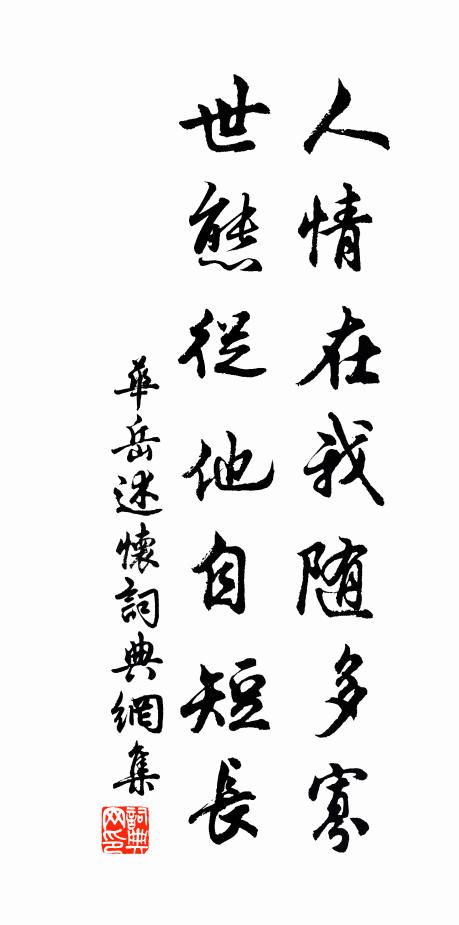 人情在我随多寡
世態從他自短長
華岳述懷詞典網集
詞典网印